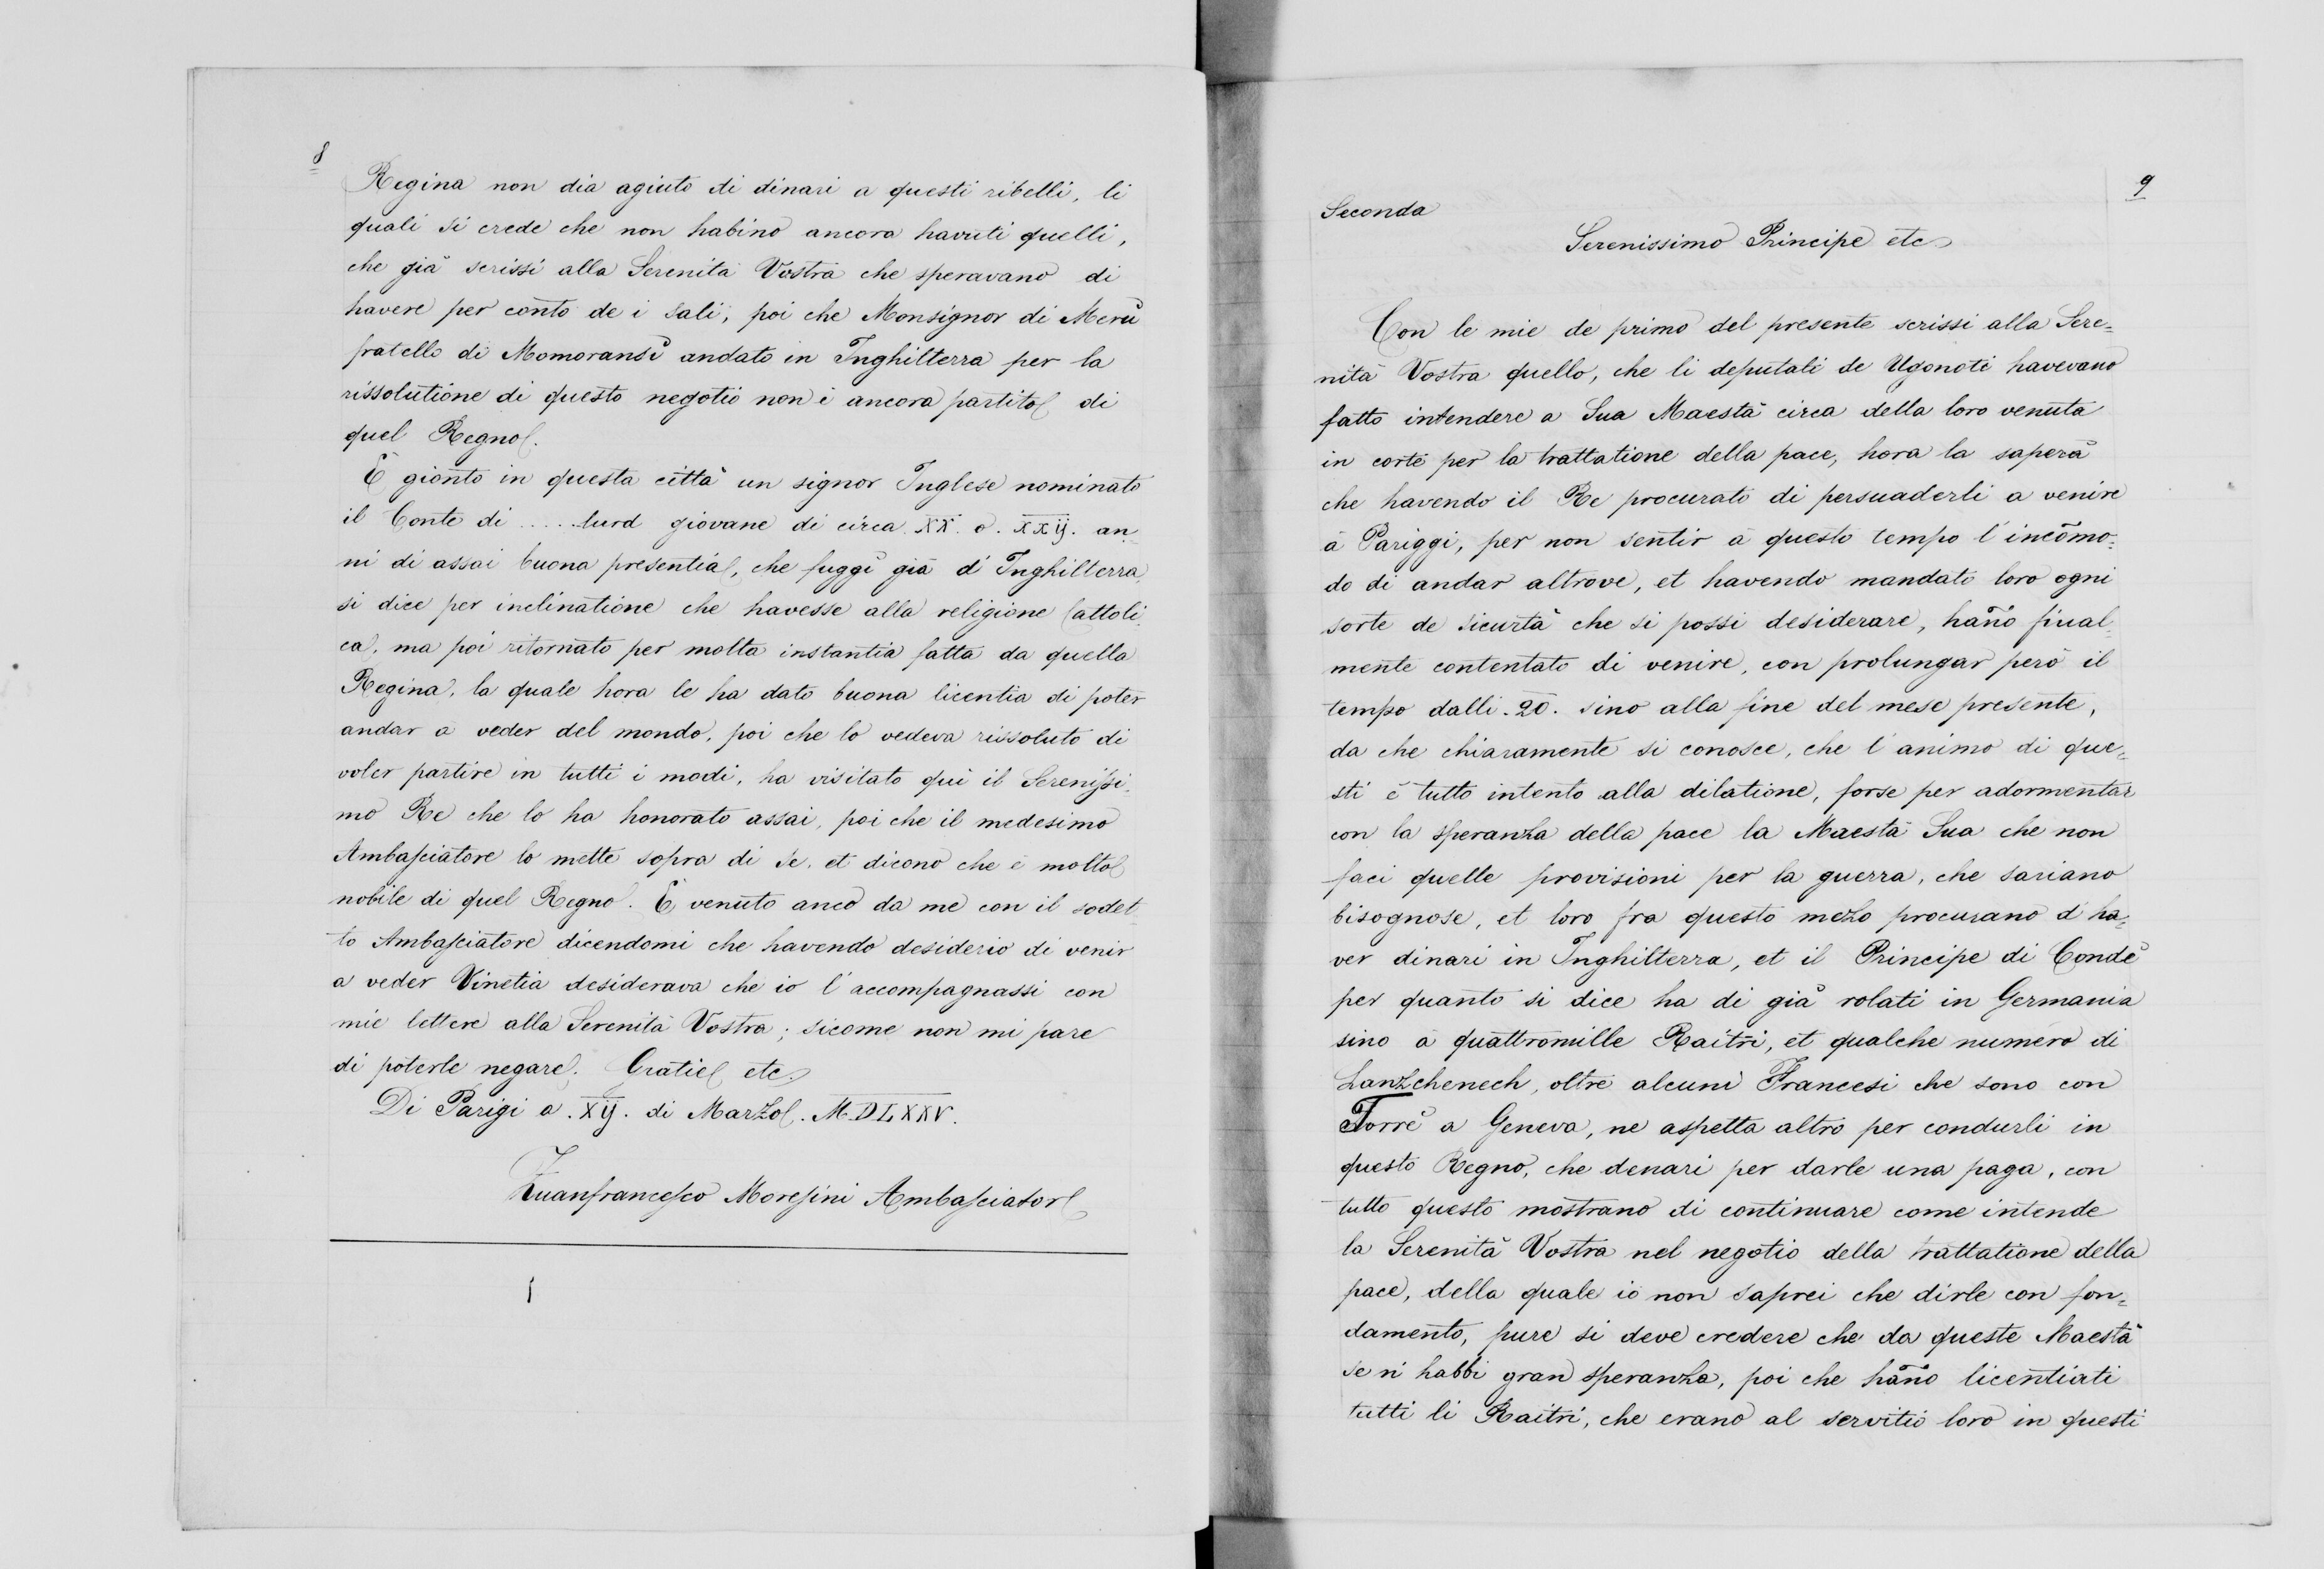 8
Regina non dia agiuto di dinari a questi ribelli, li
quali si crede che non habino ancora havuti quelli,
che già scrissi alla Serenità Vostra che speravano di
havere per conto de i sali, poi che Monsignor di Merù
fratello di Momoransì andato in Inghilterra per la
rissolutione di questo negotio non è ancora partito di
quel Regno.
È gionto in questa città un signor Inglese nominato
il Conte di ..... lurd giovane di circa XX. o. XXIJ. an-
ni di assai buona presentia, che fuggì già d'Inghilterra,
si dice per inclinatione che havesse alla religione Cattoli-
ca, ma poi ritornato per molta instantia fatta da quella
Regina, la quale hora le ha dato buona licentia di poter
andar a veder del mondo, poi che lo vedeva rissoluto di
voler partire in tutti i modi, ha visitato qui il Serenissi-
mo Re che lo ha honorato assai, poi che il medesimo
Ambasciatore lo mette sopra di se, et dicono che è molto
nobile di quel Regno. È venuto anco da me con il sodet-
to Ambasciatore dicendomi che havendo desiderio di venir
a veder Vinetia desiderava che io l'accompagnassi con
mie lettere alla Serenità Vostra; sicome non mi pare
di poterle negare. Gratie etc.
Di Parigi a. XIJ. di Marzo. M.DLXXV.
Zuanfrancesco Moresini Ambasciator
9
Seconda
Serenissimo Principe etc.
Con le mie de primo del presente scrissi alla Sere=
nità Vostra quello, che li deputati de Ugonoti havevano
fatto intendere a Sua Maestà circa della loro venuta
in corte per la trattatione della pace, hora la saperà
che havendo il Re procurato di persuaderli a venire
à Pariggi, per non sentir a questo tempo l'incõmo=
do di andar altrove, et havendo mandato loro ogni
sorte de sicurtà che si possi desiderare, hãno final-
mente contentato di venire, con prolungar però il
tempo dalli .20. sino alla fine del mese presente,
da che chiaramente si conosce, che l'animo di que=
sti è tutto intento alla dilatione, forse per adormentar
con la speranza della pace la Maestà Sua che non
faci quelle provisioni per la guerra, che sariano
bisognose, et loro fra questo mezo procurano d'ha=
ver dinari in Inghilterra, et il Principe di Condè
per quanto si dice ha di già rolati in Germania
sino à quattromille Raitri, et qualche numero di
Lanzchenech, oltre alcuni Francesi che sono con
Torrè a Geneva, ne aspetta altro per condurli in
questo Regno, che denari per darle una paga, con
tutto questo mostrano di continuare come intende
la Serenità Vostra nel negotio della trattatione della
pace, della quale io non saprei che dirle con fon=
damento, pure si deve credere che da queste Maestà
se n'habbi gran speranza, poi che hãno licentiati
tutti li Raitri, che erano al servitio loro in questi